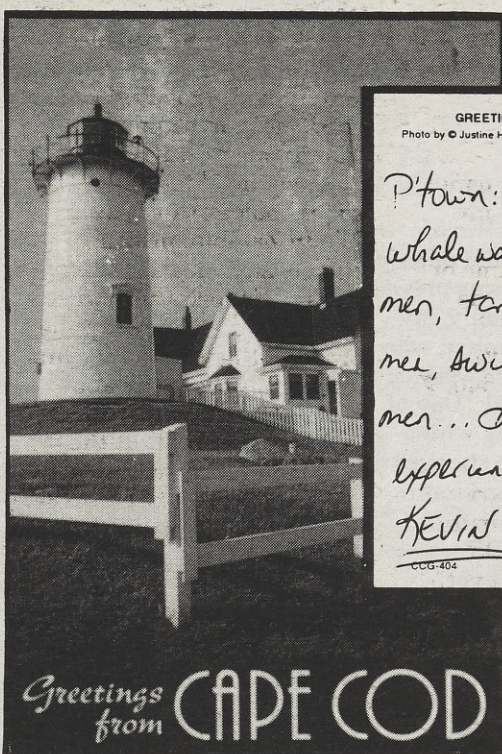 GREETI
Photo by © Justine H
P'town:
whale wa
men, tan
men, swi
men...
experien
KEVIN
CCG-404
Greetings
from
CAPE COD